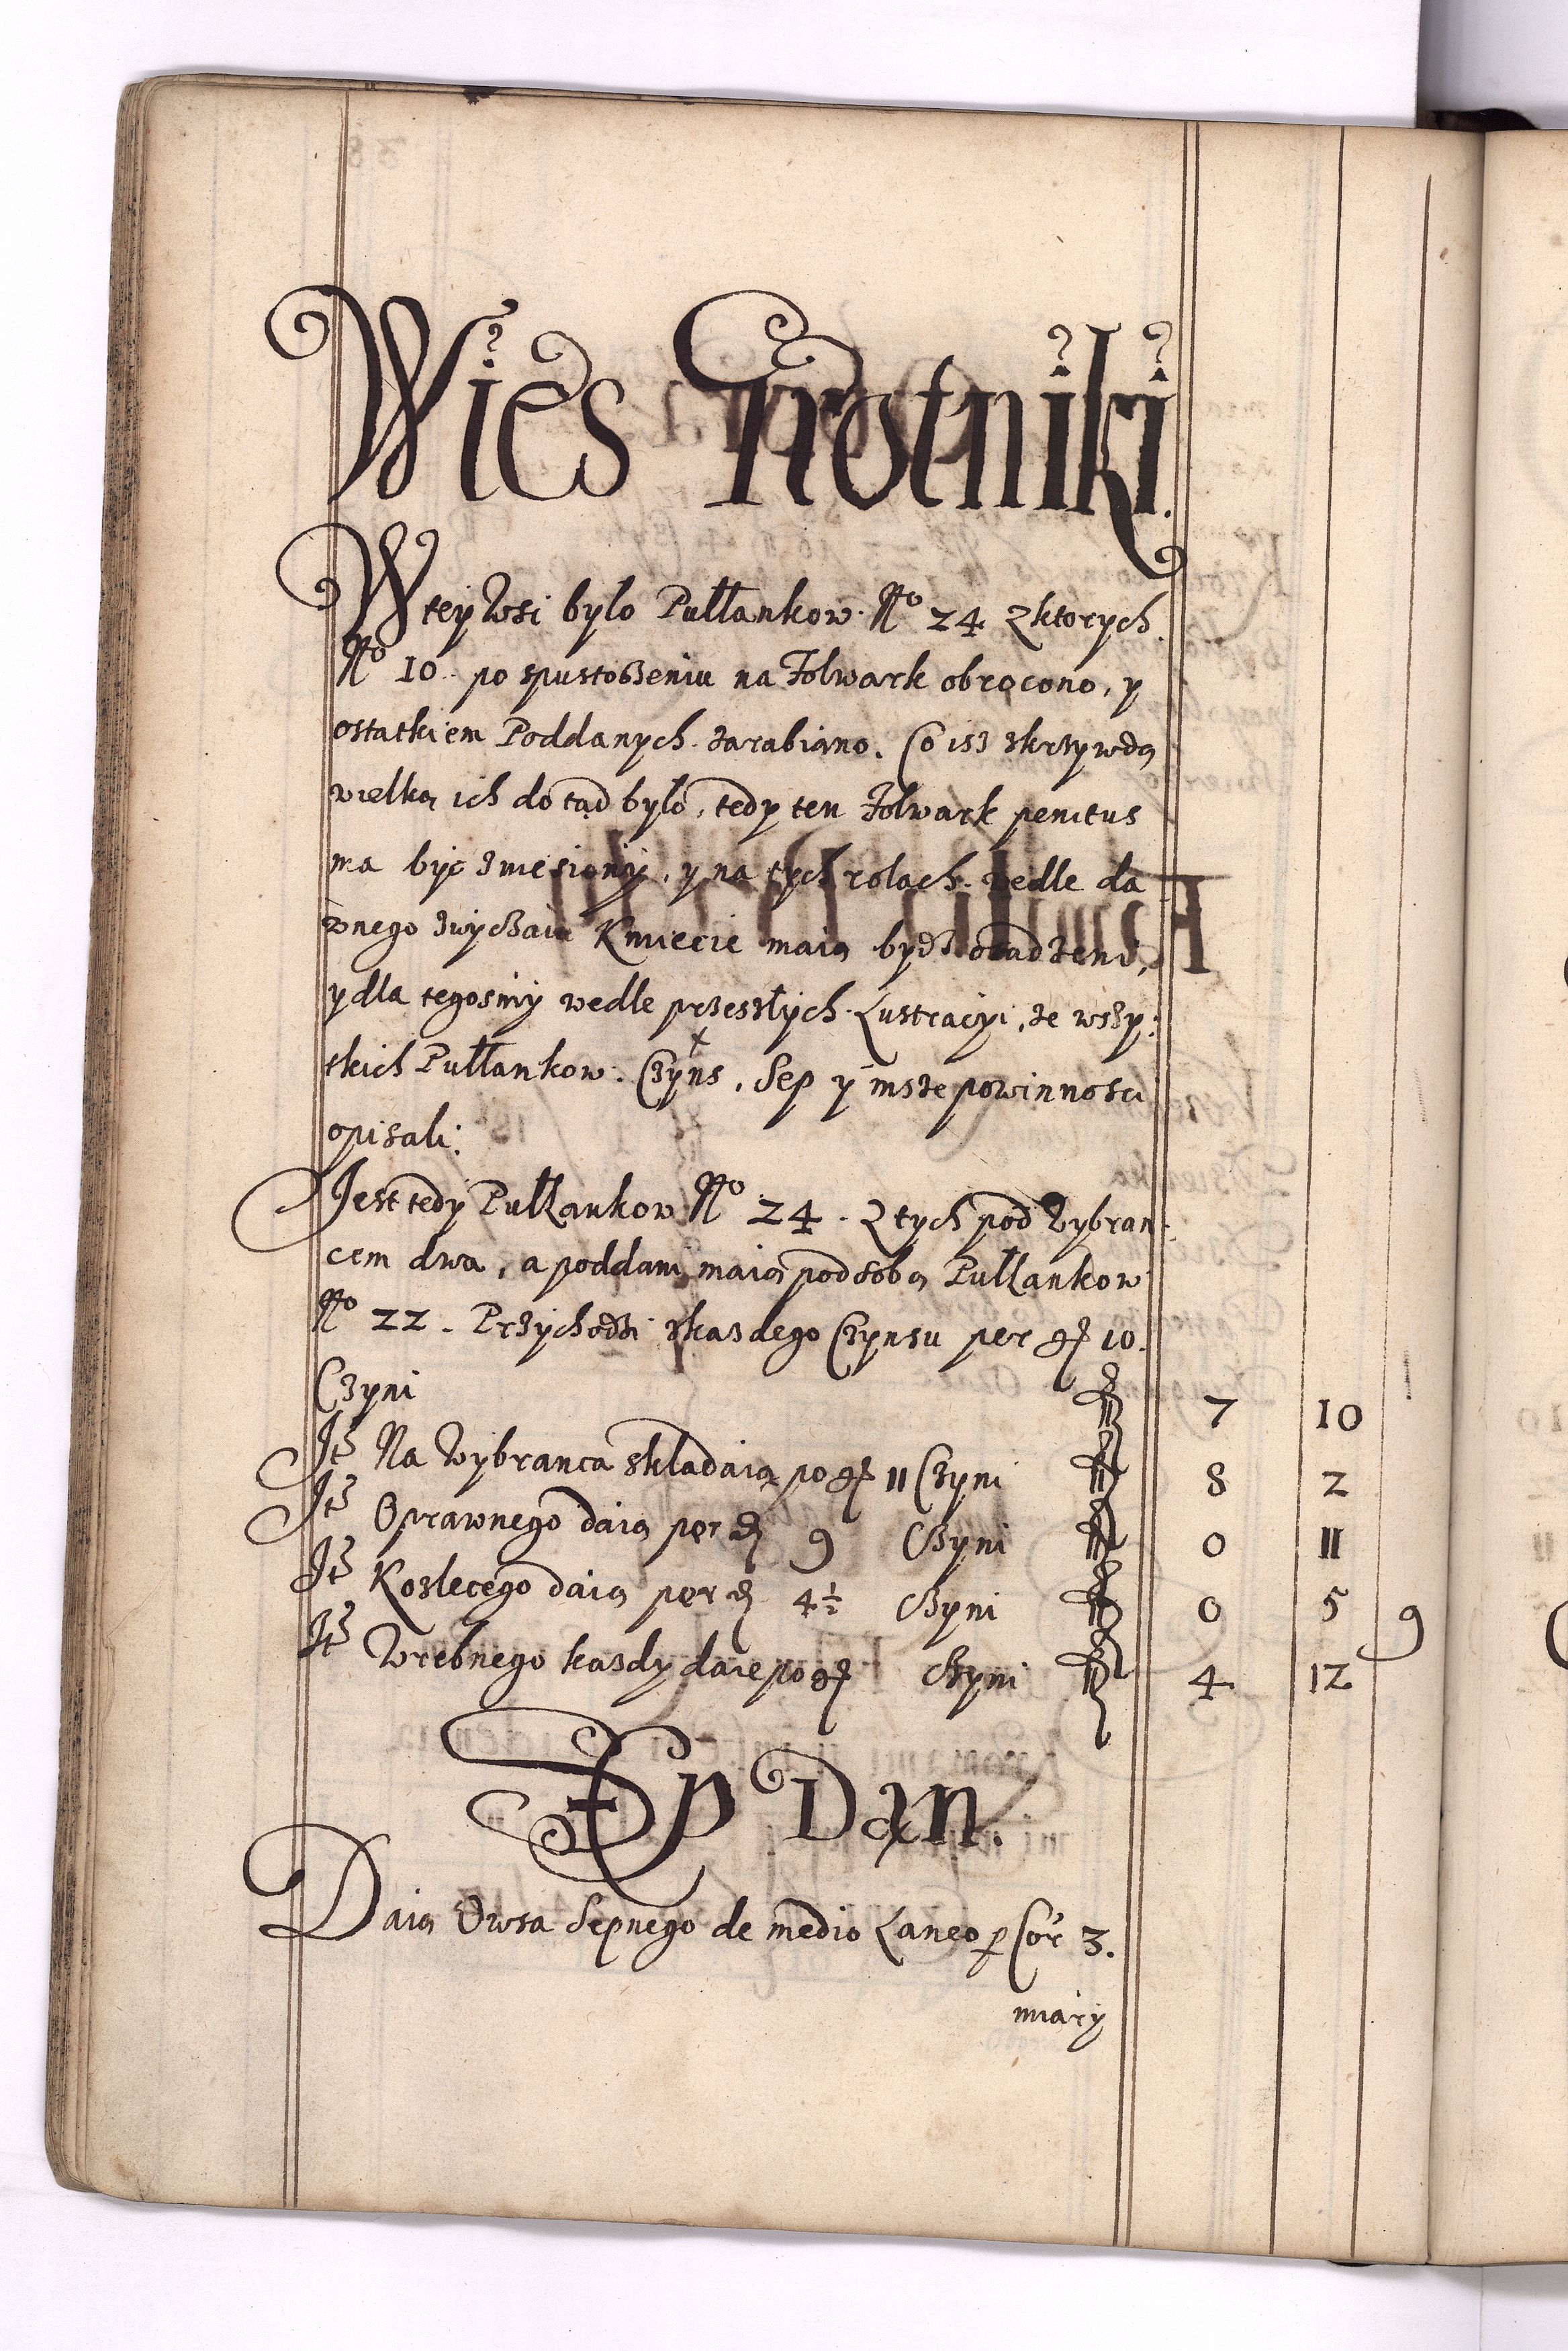 Wies Grotniki.
W tey Wsi bylo Pułłankow. No 24 z ktorych
No 10. po spustoszeniu na Folwark obrocono, y
ostatkiem Poddanych zarabiano. Co isz skrzywdą
wielką ich do tąd było, tedy ten Folwark penitus
ma bydz zniesiony, y na tych rolach. wedle da
wnego zwyczaiu Kmiecie maią bydz osadzeni,
y dla tegosmy wedle przeszłych Lustracyi, ze wszy:
skich Pułłankow. Czyns, Sep y insze powinnosci
opisali:
Jest tedy Pułłankow No 24. Z tych pod Wybran:
cem dwa, a poddani maią pod sobą Pułłankow
No 22. Przychodzi zkazdego Czynsu per gr 10.
Czyni fl 7 10
Itē Na Wybranca składaią po gr 11 Czyni fl 8 2
Itē Oprawnego daią per d 9 Czyni fl 0 11
Itē Koslecego daią per d 4½ Czyni fl 0 5 9
Itē Wrebnego kazdy daie po gr Czyni fl 4 12
Sep Dan.
Daią Owsa Sepnego de medio Laneo p Cor 3.
miary